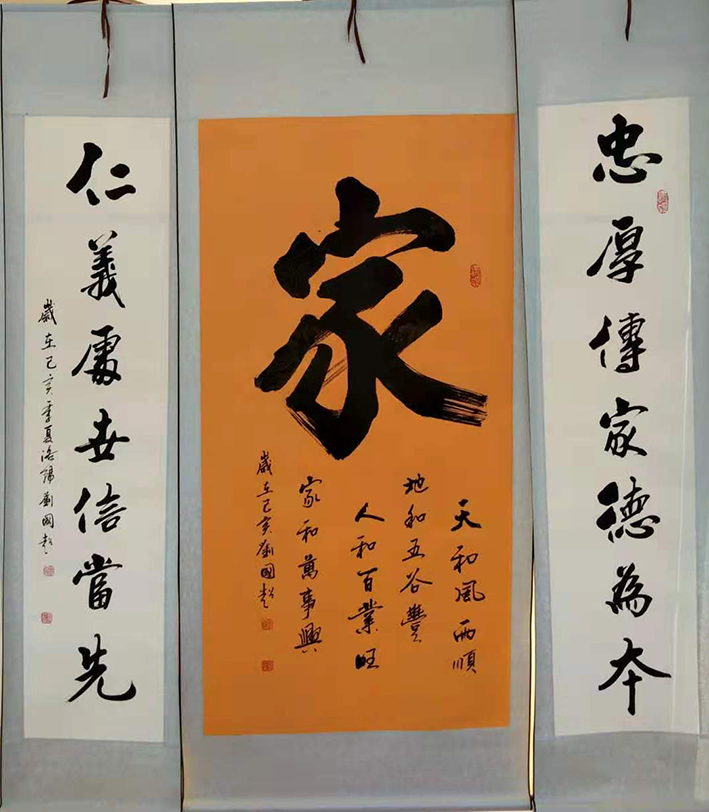 忠厚傳家德為本
家
天和風雨順
地和五谷豐
人和百業旺
家和萬事興
歲在己亥劉國超
仁義處世信當先
歲在己亥季夏洛陽劉國超